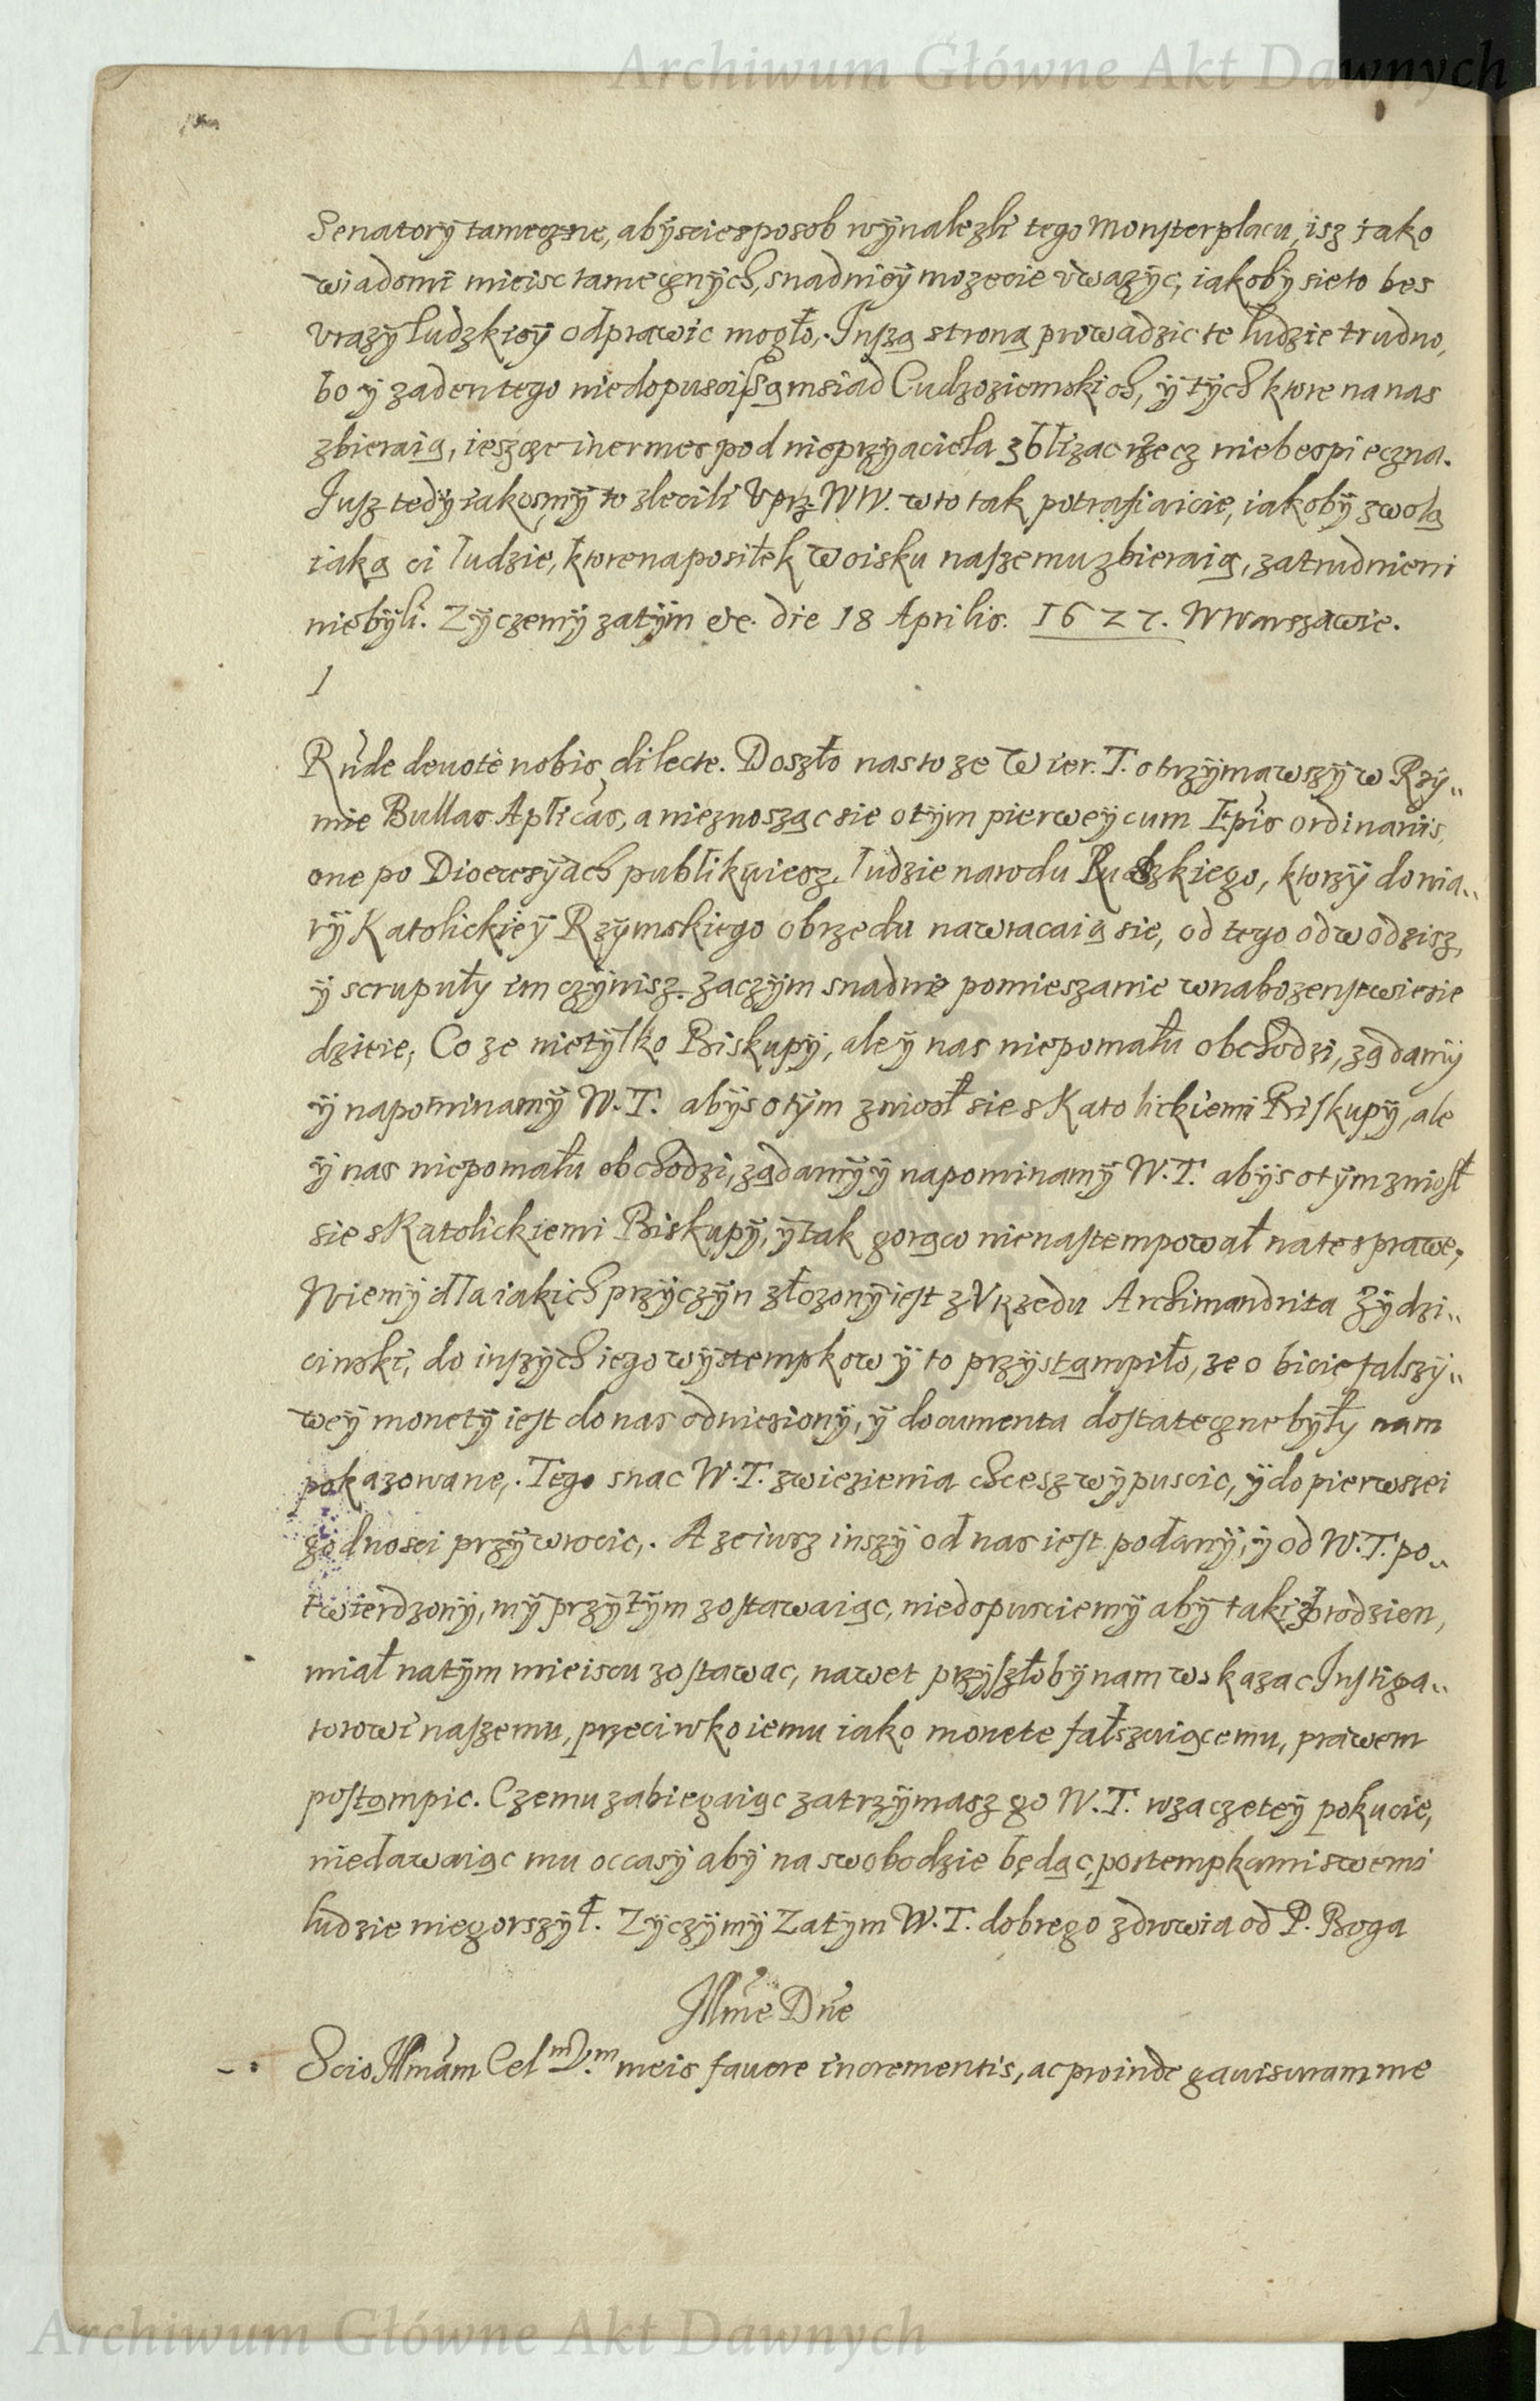 Archiwum Główne Akt Dawnych
Senatory tameczne, abyscie sposob wynalezli tego Monsterplacu, isz iako
wiadomi mieisc tamecznych, snadniey mozecie uwazyc, iakoby sie to bes
Urazy ludzkiey odprawic mogło,. Inszą stroną prowadzic te ludzie trudno,
bo y zaden tego niedopusci sąmsiad Cudzoziemskich, y tych ktore na nas
zbieraią, iescze inermes pod nieprzyaciela zblizac rzecz niebespieczna.
Jusz tedy iakosmy to zlecili Uprz. WW. w to tak potrafiaicie, iakoby zwolą
iaką ci ludzie, ktore na posiłek woisku naszemu zbieraią, zatrudnieni
niebyli. Zyczemy zatym etc. die 18 Aprilis. 1627. W Warszawie.
1
Rnde deuote nobis dilecte. Doszło nas to ze Wier. T. otrzymawszy w Rzy„
mie Bullas Aplicas, a nieznosząc sie o tym pierwey cum Epis ordinariis,
one po Dioecesyach publikuiesz, ludzie narodu Ruskiego, ktorzy do wia„
ry Katolickiey Rzymskiego obrzedu nawracaią sie, od tego odwodzisz,
y scrupuły im czynisz. Zaczym snadnie pomieszanie w nabozenstwie sie
dzieie, Co ze nietylko Biskupy, ale y nas niepomału obchodzi, ządamy
y napominamy W. T. abys o tym zniosł sie s Katolickiemi Biskupy, ale
y nas niepomału obchodzi, ządamy y napominamy W. T. abys o tym zniosł
sie s Katolickiemi Biskupy, y tak gorąco nienastempował na te sprawe,
Wiemy dla iakich przyczyn złozony iest z Urzedu Archimandrita Zydzi„
cinski, do inszych iego wystempkow y to przystąmpiło, ze o bicie falszy„
wey monety iest do nas odniesiony, y documenta dostateczne były nam
pokazowane,. Tego snac W. T. z wiezienia chcesz wypuscic, y do pierwszei
godnosci przywrocic,. A ze iusz inszy od nas iest podany, y od W. T. po„
twierdzony, my przy tym zostawaiąc, niedopusciemy aby taki zbrodzien,
miał na tym mieiscu zostawac, nawet przyszłoby nam wskazac Instiga„
torowi naszemu, przeciwko iemu iako monete fałszuiącemu, prawem
postąmpic. Czemu zabiegaiąc zatrzymasz go W. T. w zaczetey pokucie,
niedawaiąc mu occasy aby na swobodzie będąc, postempkami swemi
ludzie niegorszył. Zyczymy Zatym W. T. dobrego zdrowia od P. Boga
Illme Dne
Scio Illmam Cel meis fauere incrementis, ac proinde gauisuram me
Archiwum Główne Akt Dawnych